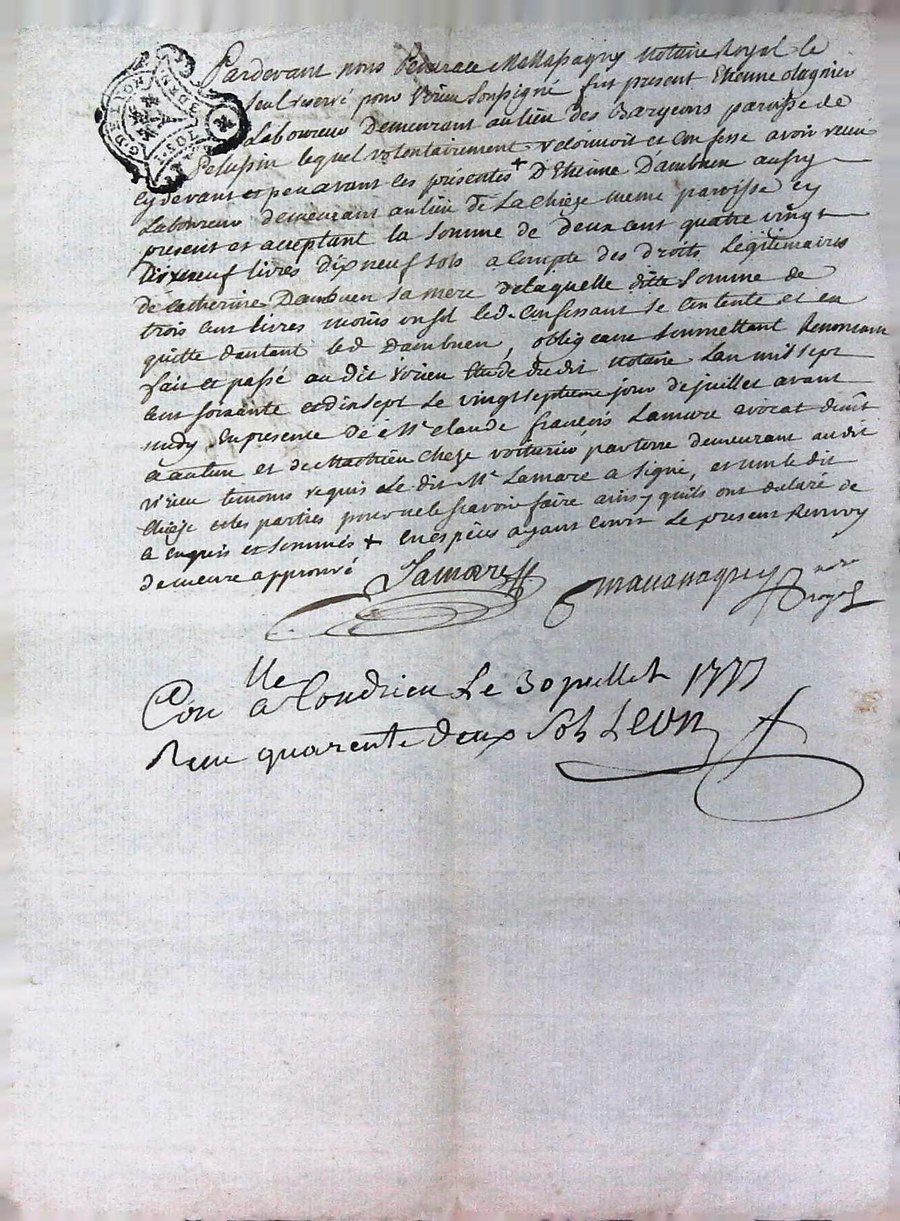 Pardevant nous notaire Royal le
seul reservé pour Virieu soussigné fut present Etienne olagnier
Laboureur demeurant au lieu des Bargeons paroisse de
Pelussin lequel volontairement reconnoit et confesse avoir receu
cy devant et peu avant les présentes + d'Etienne Dambuen aussy
Laboureur demeurant au lieu de La chièze meme paroisse cy
present et acceptant la somme de deux cent quatre vingt
dixneuf livres dixneuf sols a compte des droits Légitimaires
de catherine Dambuen sa mere de laquelle ditte somme de
trois cent livres moins un sol led. confessant se contente et en
quitte d'autant led Dambuen, obligeant soumettant Renonceant
fait et passé audit virieu Etude dudit notaire Lan mil sept
cent soixante et dix sept Le vingt septieme jour de juillet avant
midy En presence de Mr claude françois Lamare avocat
a autun et de Mathieu cheze voiturier par terre demeurant audit
virieu temoins requis Le dit Mr Lamare a signé, et non le dit
chieze et les parties pour ne le scavoir faire ainsy quils ont declaré de
ce enquis et sommés + en espèces ayant cours Le present Renvoy
demeure approuvé Lamare
nore
royal
Con lle a Condrieu Le 30 juillet 1777
Reçu quarente deux sols Leon